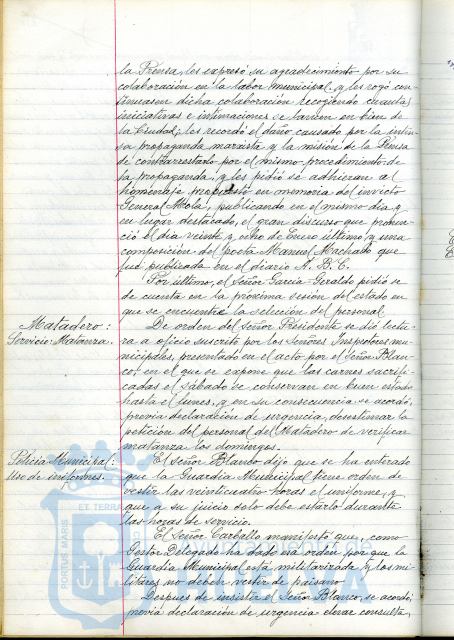 la Prensa, les expresó su agradecimiento por su
colaboración en la labor municipal, y les rogó con-
tinuasen dicha colaboración recogiendo cuantas
iniciativas e intimaciones se lancen en bien de
la Ciudad; les recordó el daño causado por la inten-
sa propaganda marxista y la misión de la Prensa
de contrarrestarlo por el mismo procedimiento de
la propaganda; y les pidió se adhieran al
homenaje propuesto en memoria del invicto
General Mola, publicando en el mismo día y
en lugar destacado, el gran discurso que pronun-
ció el día veinte y ocho de Enero último, y una
composición del poeta Manuel Machado que
fué publicada en el diario A. B. C.
Por último, el Señor García-Geraldo pidió se
de cuenta en la próxima sesión del estado en
que se encuentra la selección del personal
Matadero:
Servicio: Matanza.
De orden del Señor Presidente se dió lectu-
ra a oficio suscrito por los Señores Inspectores mu-
nicipales, presentado en el acto por el Señor Blan-
co, en el que se expone que las carnes sacrifi-
cadas el sábado se conservan en buen estado
hasta el lunes, y en su consecuencia se acordó,
previa declaración de urgencia, desestimar la
petición del personal del Matadero de verificar
matanza los domingos.
Policía Municipal:
Uso de uniformes.
El Señor Blanco dijo que se ha enterado
que la Guardia Municipal tiene orden de
vestir las veinticuatro horas el uniforme, y
que a su juicio solo debe estarlo durante
las horas de servicio.
El Señor Carballo manifestó que, como
Gestor Delegado ha dado esa orden por que la
Guardia Municipal está militarizada y los mi-
litares no deben vestir de paisano.
Despues de insistir el Señor Blanco, se acordó
previa declaración de urgencia elevar consulta,
PORTUS MARIS
ET TERRA